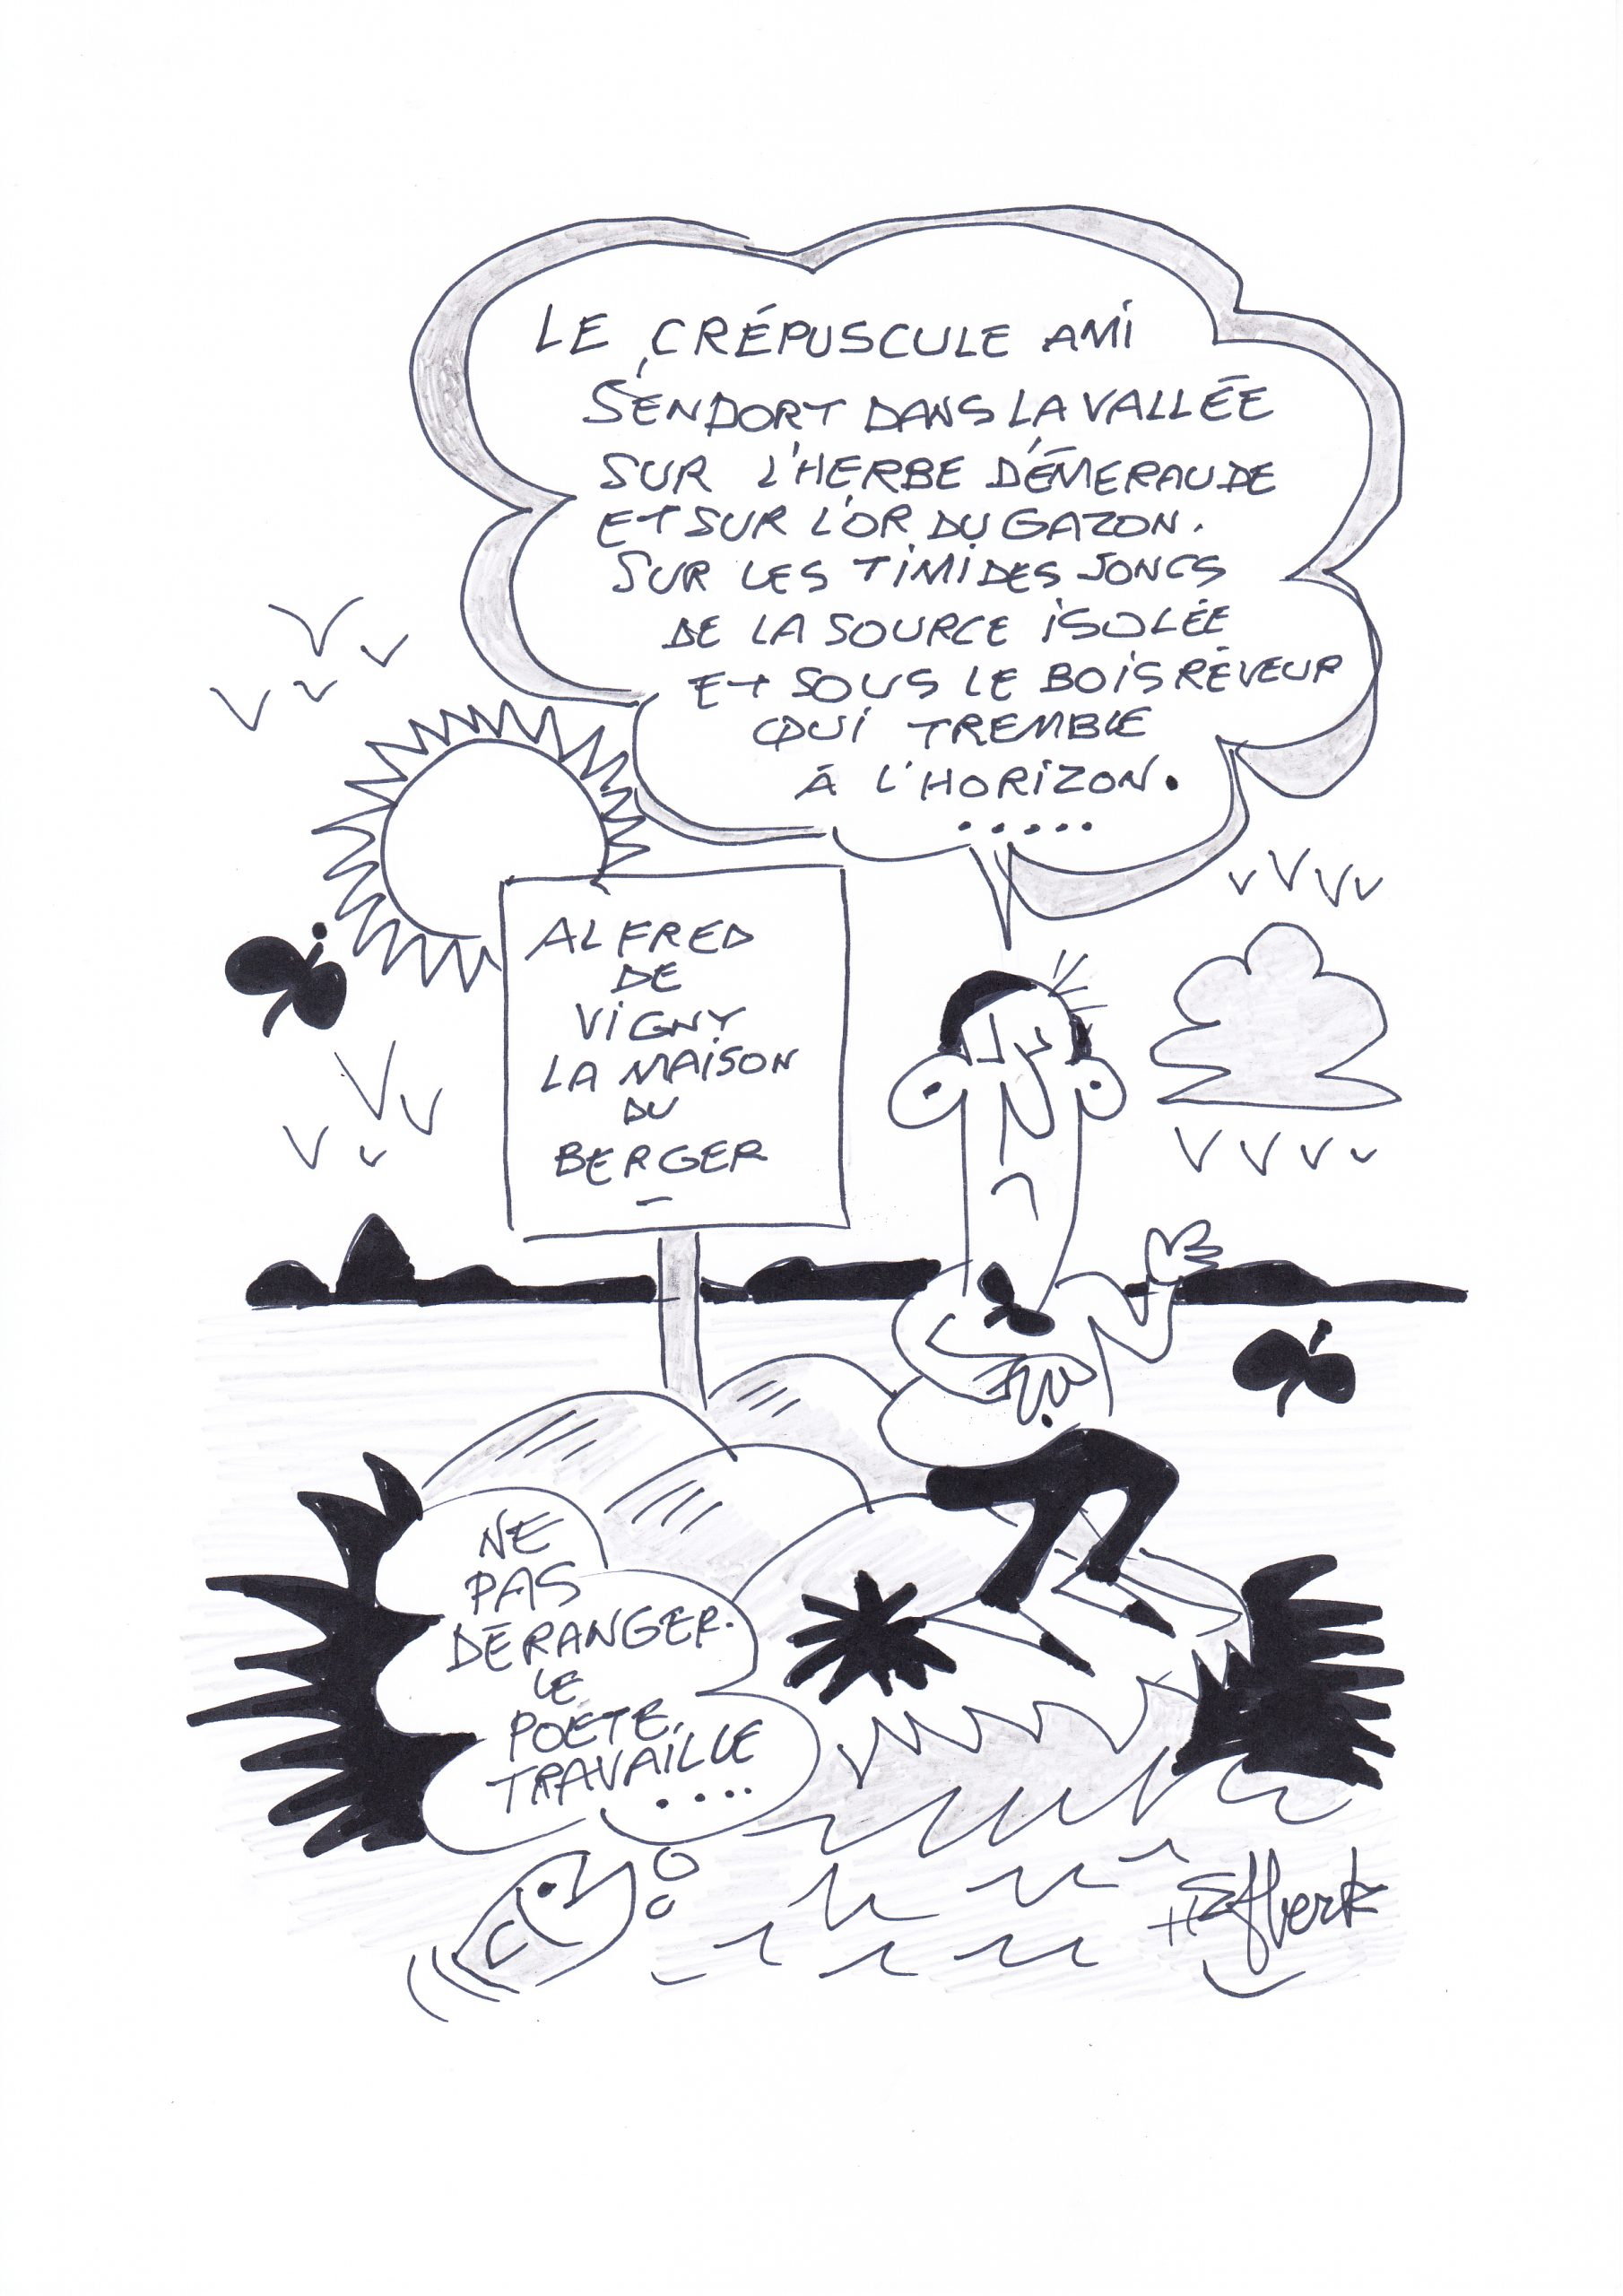 LE CRÉPUSCULE AMI
S'ENDORT DANS LA VALLÉE
SUR L'HERBE D'ÉMERAUDE
ET SUR L'OR DU GAZON.
SUR LES TIMIDES JONCS
DE LA SOURCE ISOLÉE
ET SOUS LE BOIS RÊVEUR
QUI TREMBLE
À L'HORIZON.
.....
ALFRED
DE
VIGNY
LA MAISON
DU
BERGER
NE
PAS
DÉRANGER.
LE
POÈTE
TRAVAILLE
....